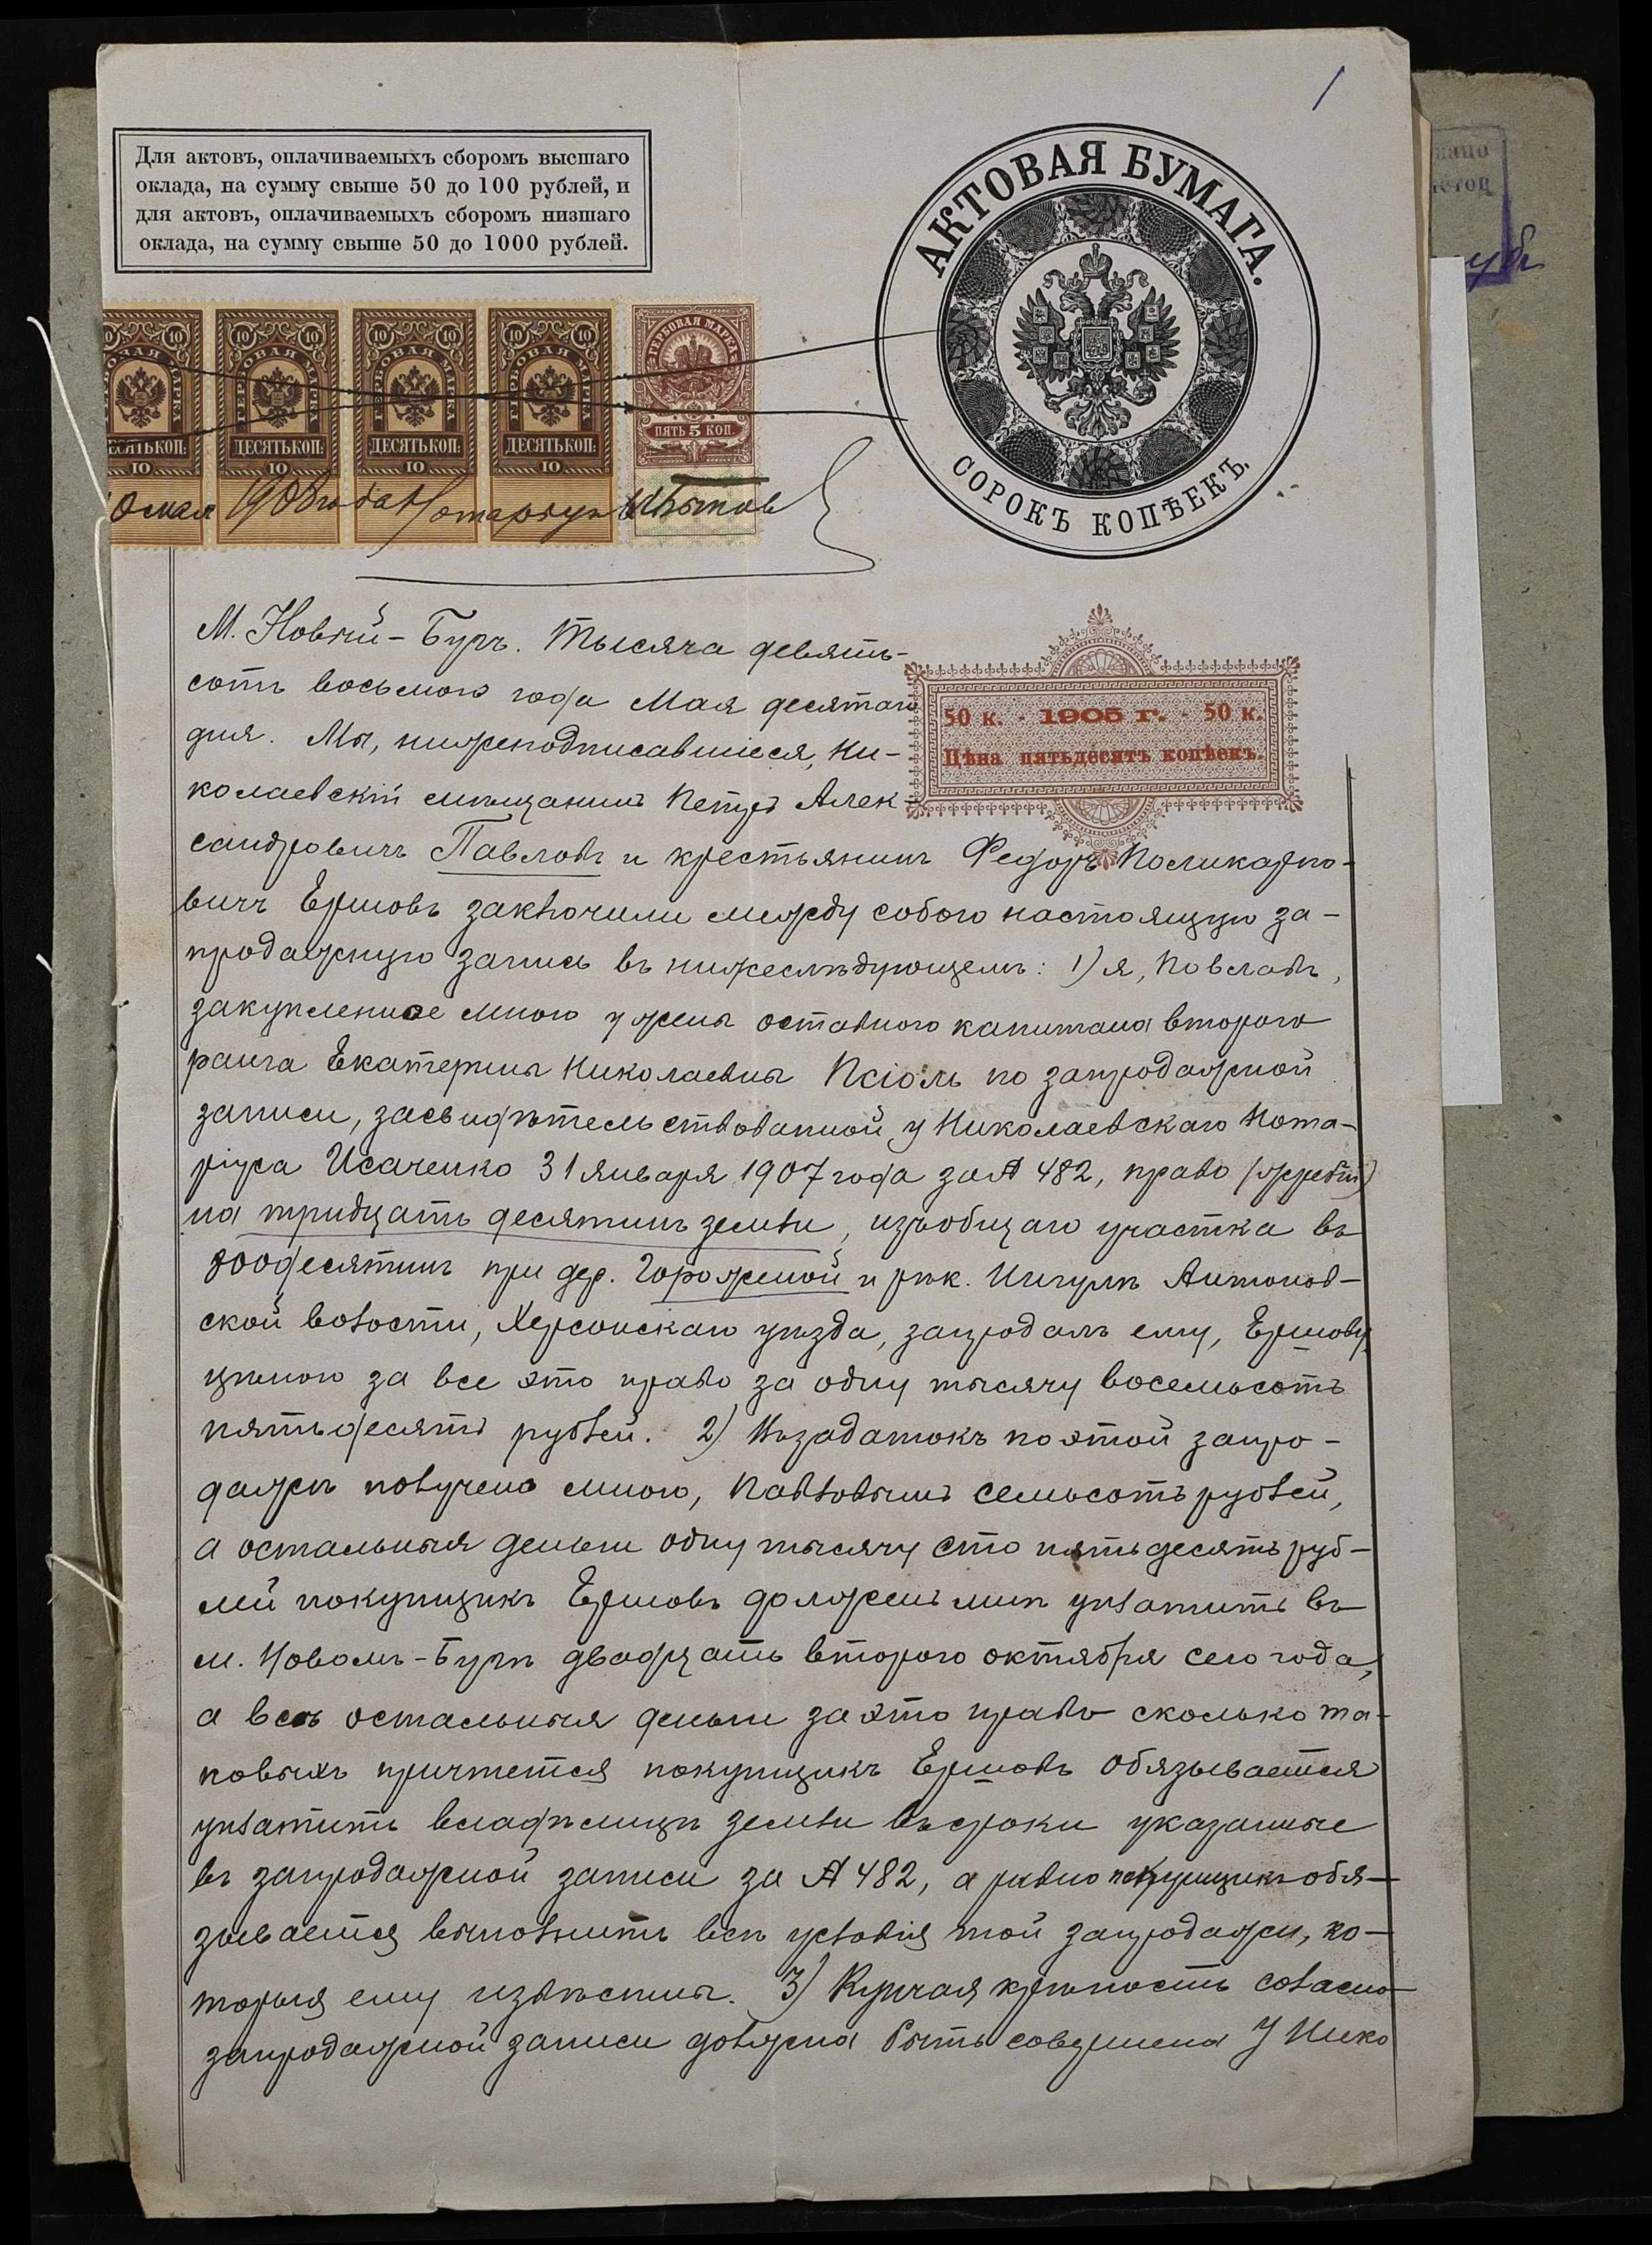 Для актовъ, оплачиваемыхъ сборомъ высшаго
оклада, на сумму свыше 50 до 100 рублей, и
для актовъ, оплачиваемыхъ сборомъ низшаго
оклада, на сумму свыше 50 до 1000 рублей.
АКТОВАЯ БУМАГА.
СОРОКЪ КОПѢЕКЪ.
ГЕРБОВАЯ МАРКА
ДЕСЯТЬ КОП:
10
ГЕРБОВАЯ МАРКА
ДЕСЯТЬ КОП:
10
ГЕРБОВАЯ МАРКА
ДЕСЯТЬ КОП:
10
ГЕРБОВАЯ МАРКА
ДЕСЯТЬ КОП:
10
ГЕРБОВАЯ МАРКА
ПЯТЬ 5 КОП.
10 мая 1908 года Нотаріусъ
50 к. - 1905 г. - 50 к.
Цѣна пятьдесятъ копѣекъ.
М. Новый-Бугъ. Тысяча девять-
сотъ восьмого года Мая десятаго
дня. Мы, нижеподписавшіеся, Ни-
колаевскій мѣщанинъ Петръ Алек-
сандровичъ Павловъ и крестьянинъ Федоръ Поликарпо-
вичъ Ершовъ заключили между собою настоящую за-
продажную запись въ нижеслѣдующемъ: 1) я, Повловъ,
закупленное мною у жены оставного капитана второго
ранга Екатерины Николаевны Псіолъ по запродажной
записи, засвидѣтельствованной у Николаевскаго Нота-
ріуса Исаченко 31 Января 1907 года за № 482, право (жребій)
на тридцать десятинъ земли, изъ общаго участка въ
800 десятинъ при дер. Горожоной и рѣк. Ингулѣ Антонов-
ской волости, Херсонскаго уѣзда, запродалъ ему, Ершову,
цѣною за все это право за одну тысячу восемьсотъ
пятьдесятъ рублей. 2) Въ задатокъ по этой запро-
дажѣ получено мною, Павловымъ семьсотъ рублей,
а остальныя деньги одну тысячу сто пятьдесятъ руб-
лей покупщикъ Ершовъ долженъ мнѣ уплатить въ
м. Новомъ-Бугѣ двадцать второго октября сего года,
а всѣ остальныя деньги за это право сколько та-
ковыхъ причтется покупщикъ Ершовъ обязывается
уплатить владѣлицѣ земли въ сроки указанные
въ запродажной записи за № 482, а равно покупщикъ обя-
зывается выполнить всѣ условія той запродажи, ко-
торыя ему извѣстны. 3) Купчая крѣпость согласно
запродажной записи должна быть совершена у Нико